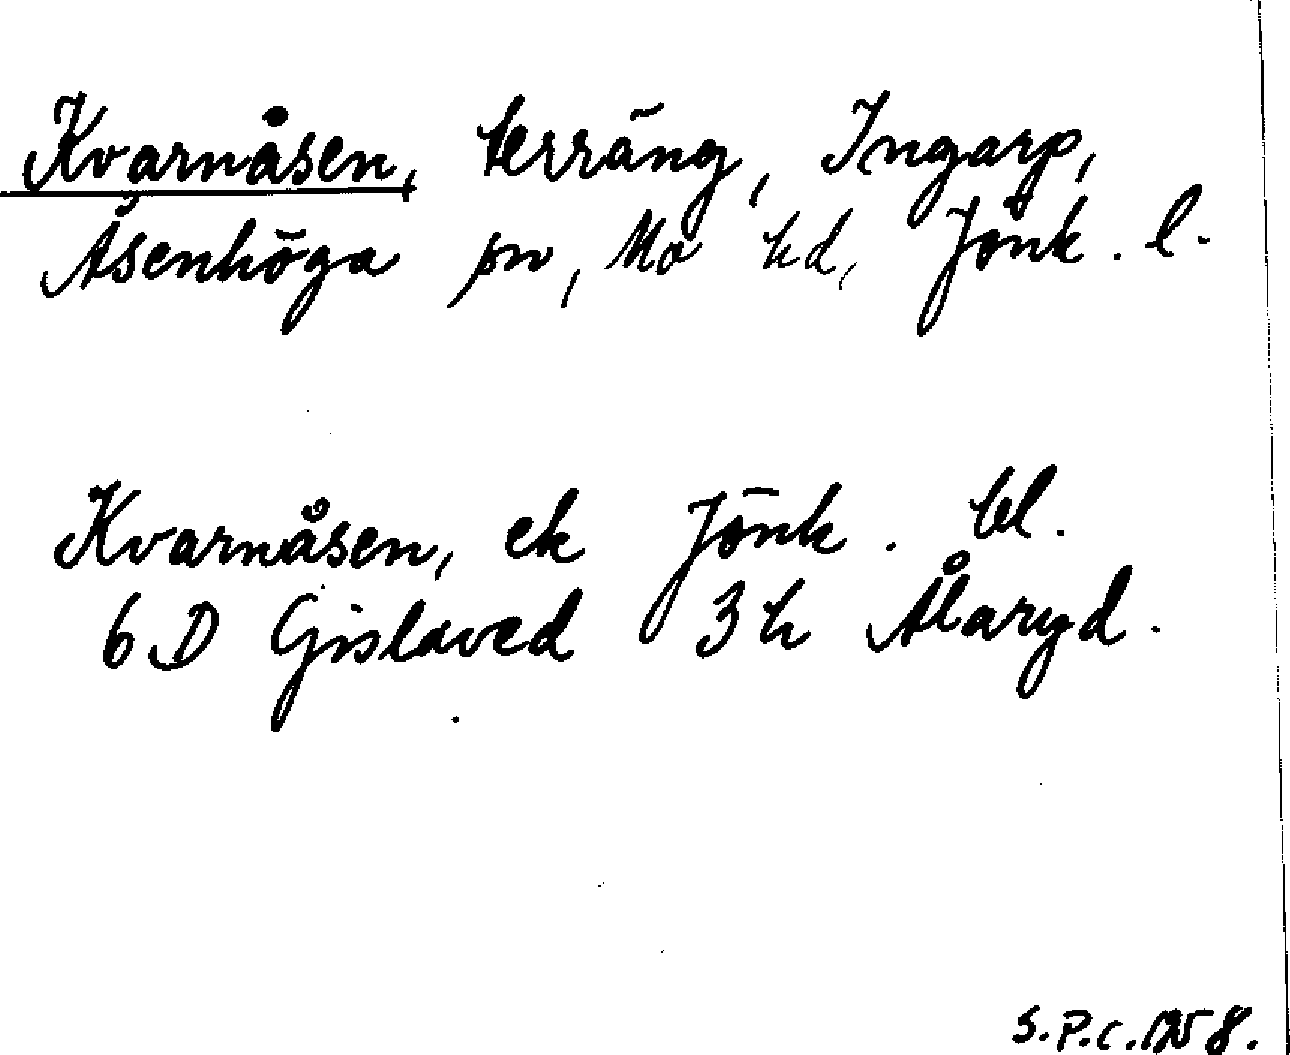 Kvarnåsen, terräng, Ingarp,
Åsenhöga sn, Mo hd, Jönk. l.
Kvarnåsen, ek Jönk. bl.
6 D Gislaved 3 h Ålaryd.
S.P.C. 1958.